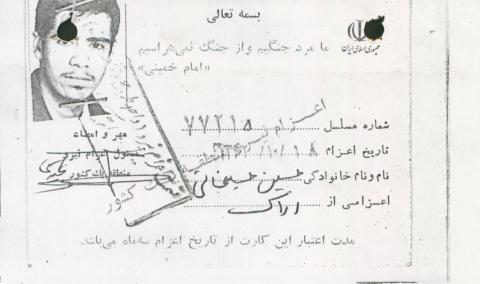 بسمه تعالی
جمهوری اسلامی ایران
ما مرد جنگیم و از جنگ نمی‌هراسیم
«امام خمینی»
شماره مسلسل ۷۷۲۱۵
تاریخ اعزام ۱۳۶۲/۱۰/۱۸
نام و نام خانوادگی حسین حسینخانی
اعزامی از اراک
مهر و امضاء
مسئول اعزام نیرو
منطقه یک کشور
مدت اعتبار این کارت از تاریخ اعزام سه‌ماه می‌باشد